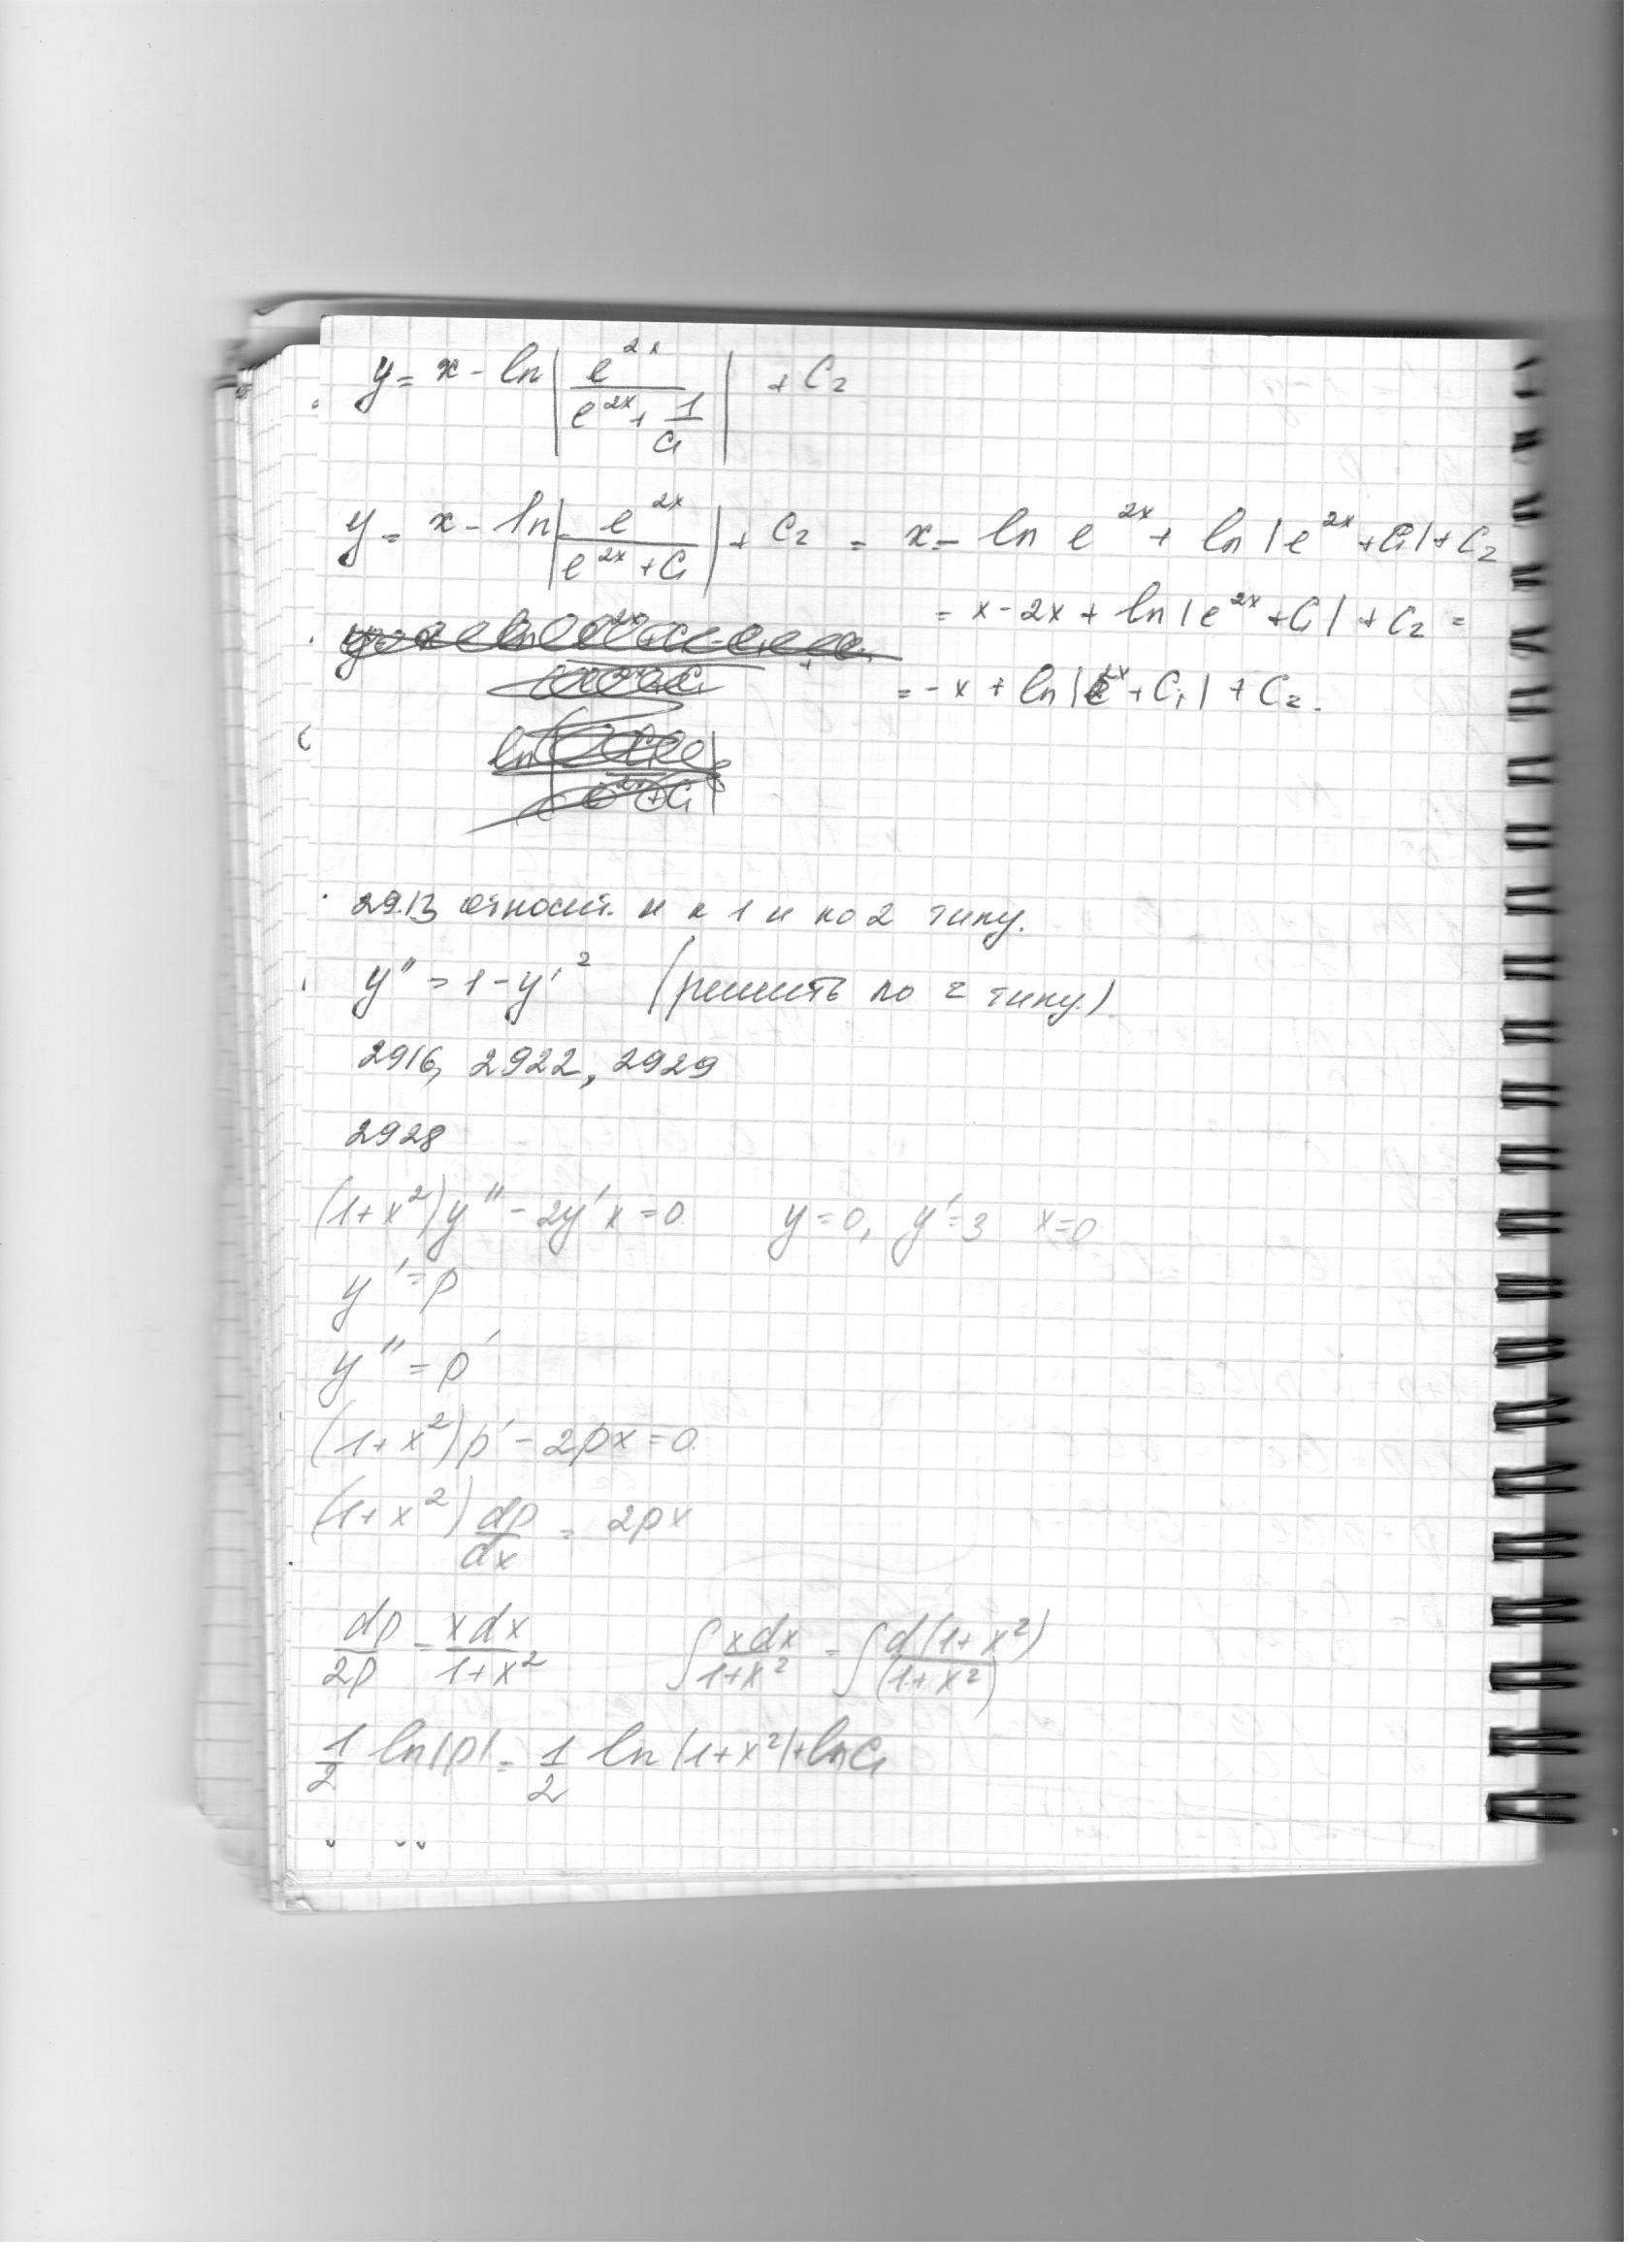 y = x - ln | e^{2x} / (e^{2x} + 1/C₁) | + C₂
y = x - ln | e^{2x} / (e^{2x} + C₁) | + C₂ = x - ln e^{2x} + ln |e^{2x} + C₁| + C₂
= x - 2x + ln |e^{2x} + C₁| + C₂ =
= -x + ln |e^{2x} + C₁| + C₂.
29.13 относит. и к 1 и ко 2 типу.
y'' = 1 - y'^2 (решить по 2 типу.)
2916, 2922, 2929
2928
(1+x^2)y'' - 2y'x = 0 y=0, y'=3 x=0
y' = p
y'' = p'
(1+x^2)p' - 2px = 0
(1+x^2) dp/dx = 2px
dp/2p = xdx/(1+x^2) ∫ xdx/(1+x^2) = ∫ d(1+x^2)/(1+x^2)
1/2 ln|p| = 1/2 ln|1+x^2| + ln C₁